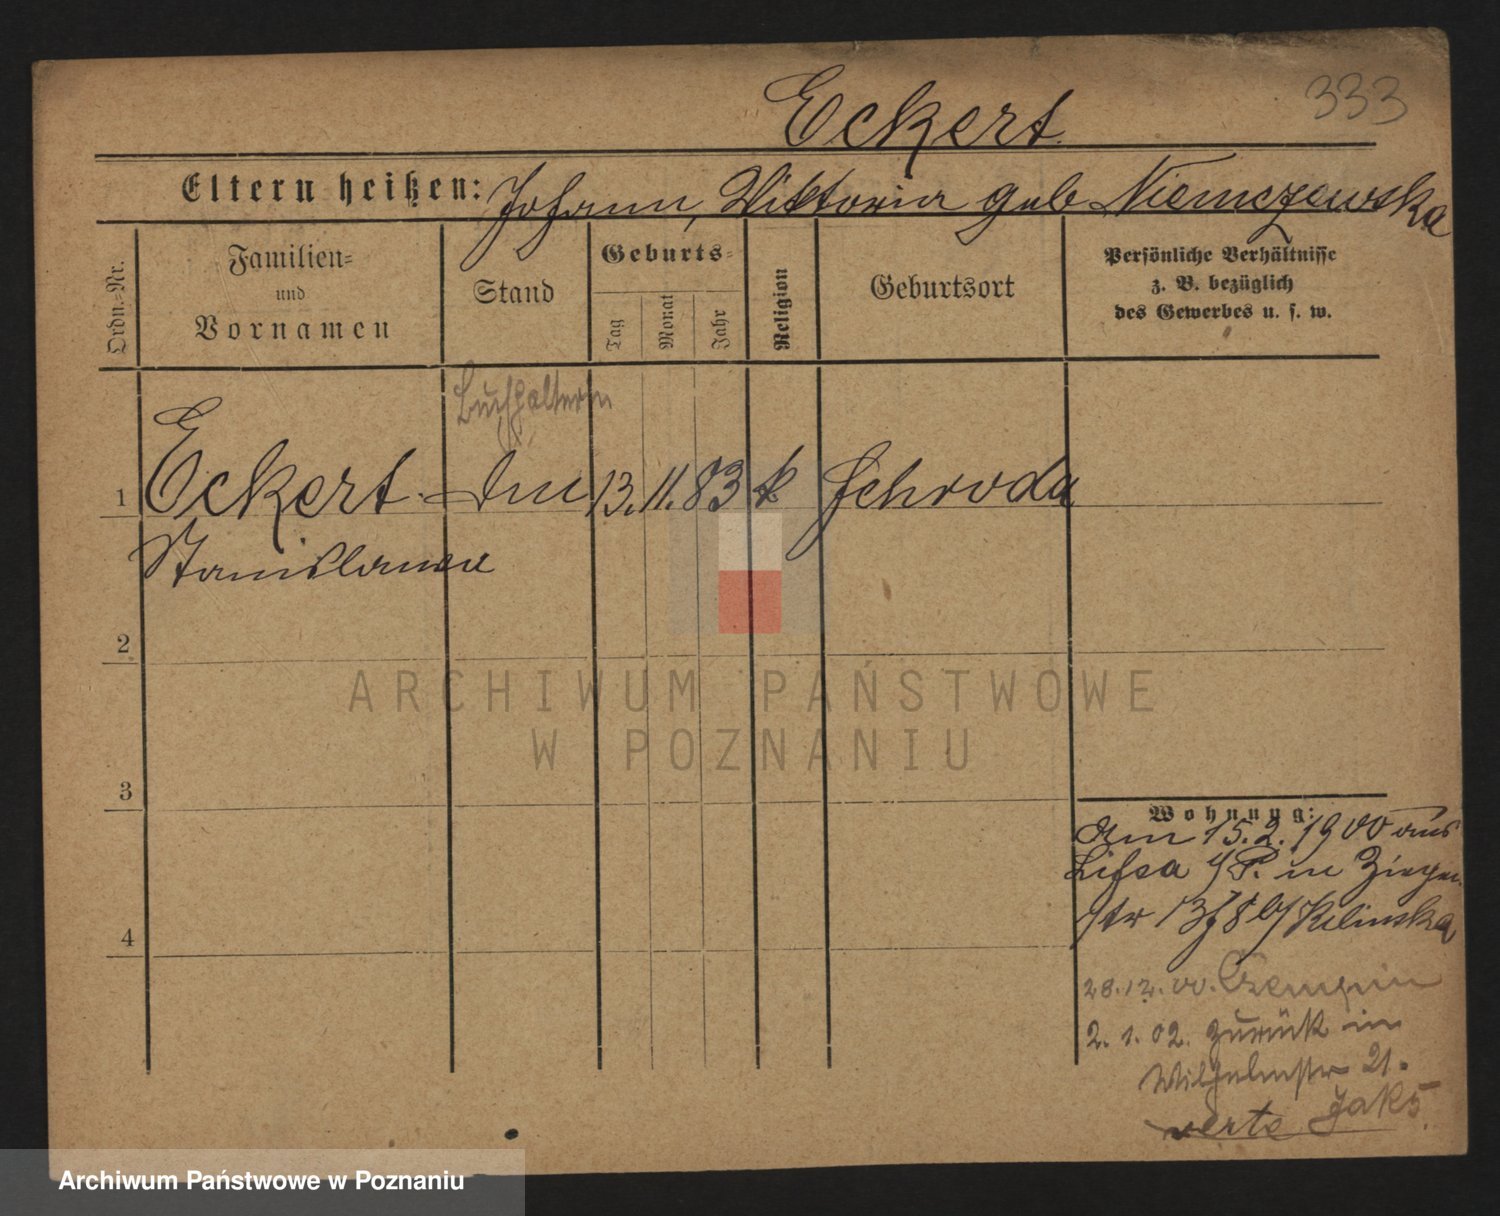 333
Eckert
Eltern heißen: Johann, Viktoria geb Niemczewska
Ordn.=Nr.
Familien=
und
Vornamen
Stand
Geburts=
Tag
Monat
Jahr
Religion
Geburtsort
Persönliche Verhältnisse
z. B. bezüglich
des Gewerbes u. s. w.
Buchhalterin
1 Eckert 13. 11. 83 k Schroda
Stanislawa
2
3
4
ARCHIWUM PAŃSTWOWE
W POZNANIU
Wohnung:
Am 15.2.1900 aus
Lissa i/P. in Ziegen
str 13/8 b/ Kilinska
28.12.00. Czempin
2.1.02. zurück in
Wilhelmstr 21.
verte
Archiwum Państwowe w Poznaniu